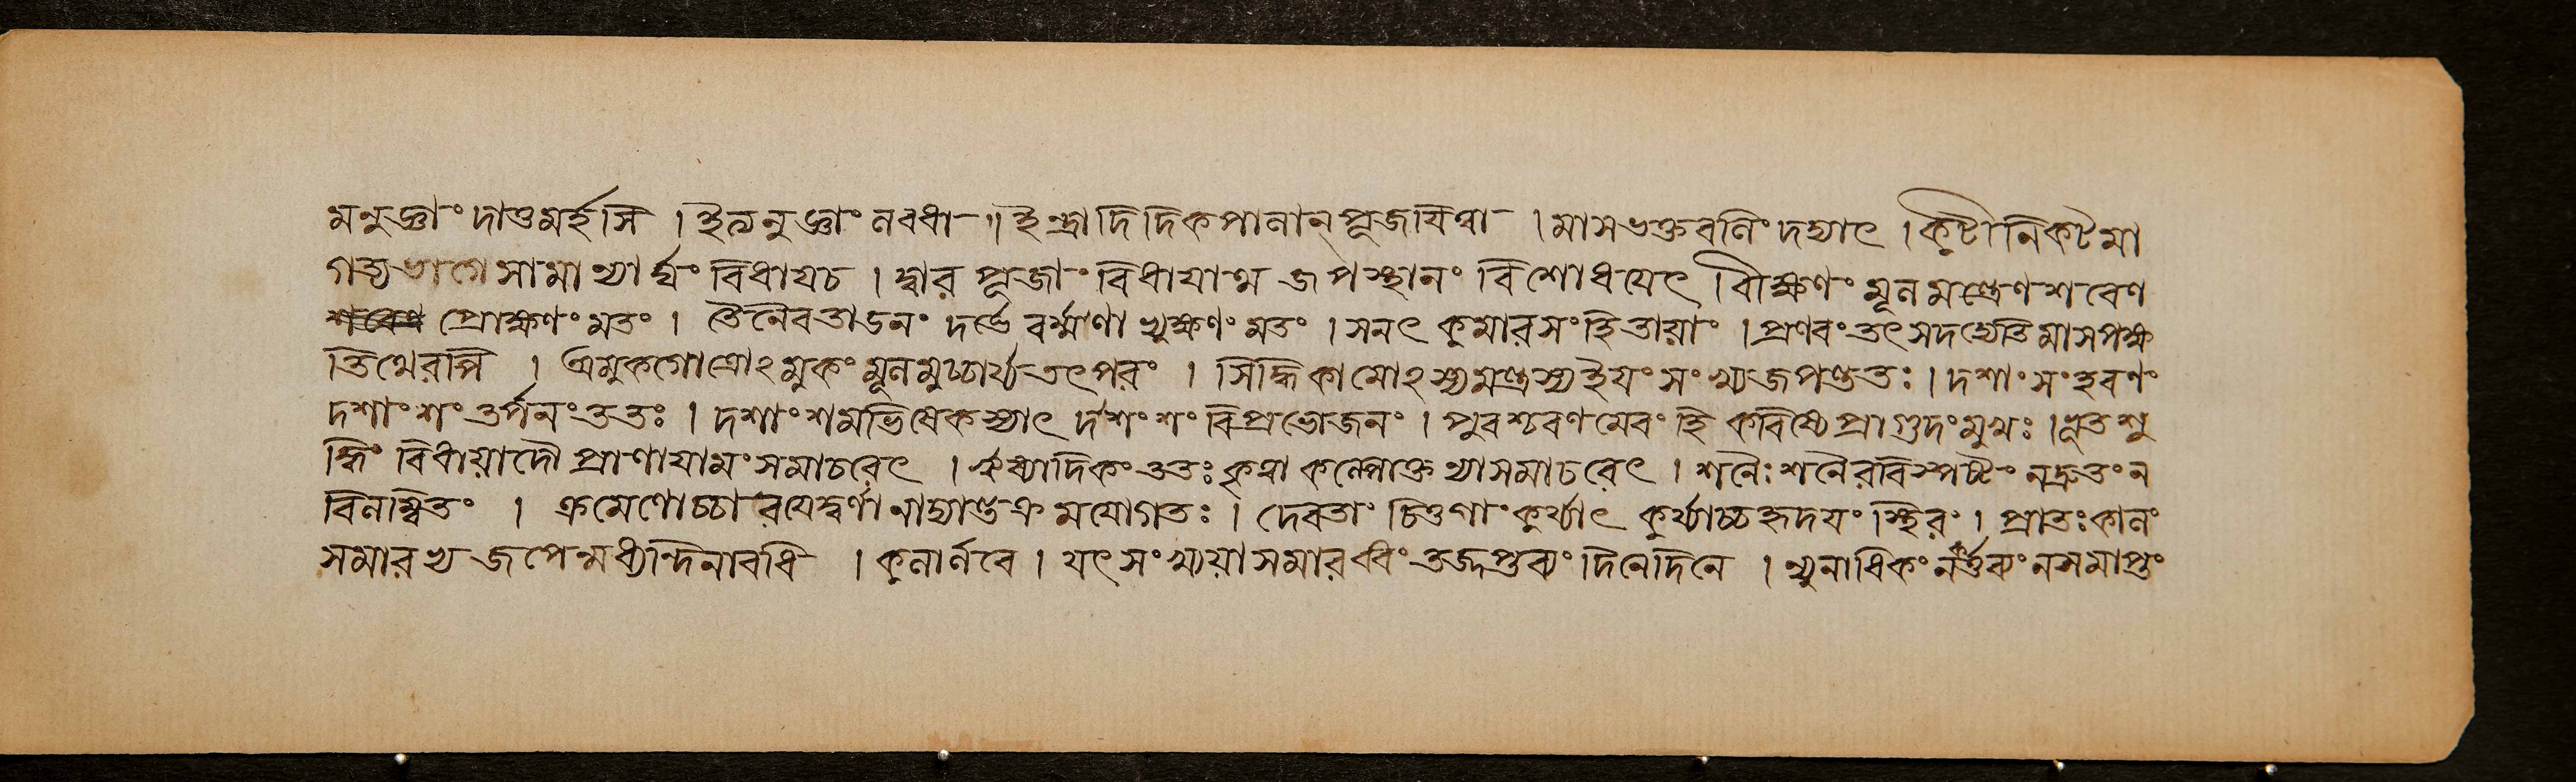 মনুজ্ঞাং দাতুমর্হসি । ইত্যনুজ্ঞাং নবধা ॥ ইন্দ্রাদি দিকপালান্ পূজয়িত্বা । মাসভক্তবলিং দদ্যাৎ । কুটী নিকটমা
গত্য ভাগে সামান্যার্ঘ্যং বিধায়চ । দ্বার পূজাং বিধায়াথ জপস্থানং বিশোধয়েৎ । বীক্ষণং মূলমন্ত্রেণ শরেণ
প্রোক্ষণং মতং । তেনৈবতাডনং দর্ভে বর্ম্মণাভ্যুক্ষণং মতং । সনৎ কুমারসংহিতায়াং । প্রণবং তৎসদদ্যেতি মাসপক্ষ
তিথেরপি । অমুকগোত্রোঽমুকং মূলমুচ্চার্য্য তৎপরং । সিদ্ধিকামোঽস্যমন্ত্রস্য ইয়ং সংখ্যজপন্ততঃ । দশাংসংহবণং
দশাংশং তর্পনং ততঃ । দশাংশমভিষেকস্যাৎ দশংশং বিপ্রভোজনং । পুরশ্চরণমেবং হি করিষ্যে প্রাগুদংমুখঃ । ভূতশু
দ্ধিং বিধায়াদৌ প্রাণায়ামং সমাচরেৎ । ঋষ্যাদিকং ততঃ কৃত্বা কল্পোক্তন্যাসমাচরেৎ । শনৈঃ শনৈরবিস্পষ্টং নদ্রুতং ন
বিলম্বিতং । ক্রমেণোচ্চারয়েদ্বর্ণানাদ্যান্তক্রমযোগতঃ । দেবতাং চিত্তগাং কুর্য্যাৎ কুর্য্যাচ্চহৃদয়ং স্থিরং । প্রাতঃকালং
সমারভ্য জপেন্মধ্যন্দিনাবধি । কুলার্নবে । যৎসংখ্যয়া সমারব্ধং তজ্জপ্তব্যং দিনেদিনে । ন্যুনাধিকং নকর্ত্তব্যং নসমাপ্তং